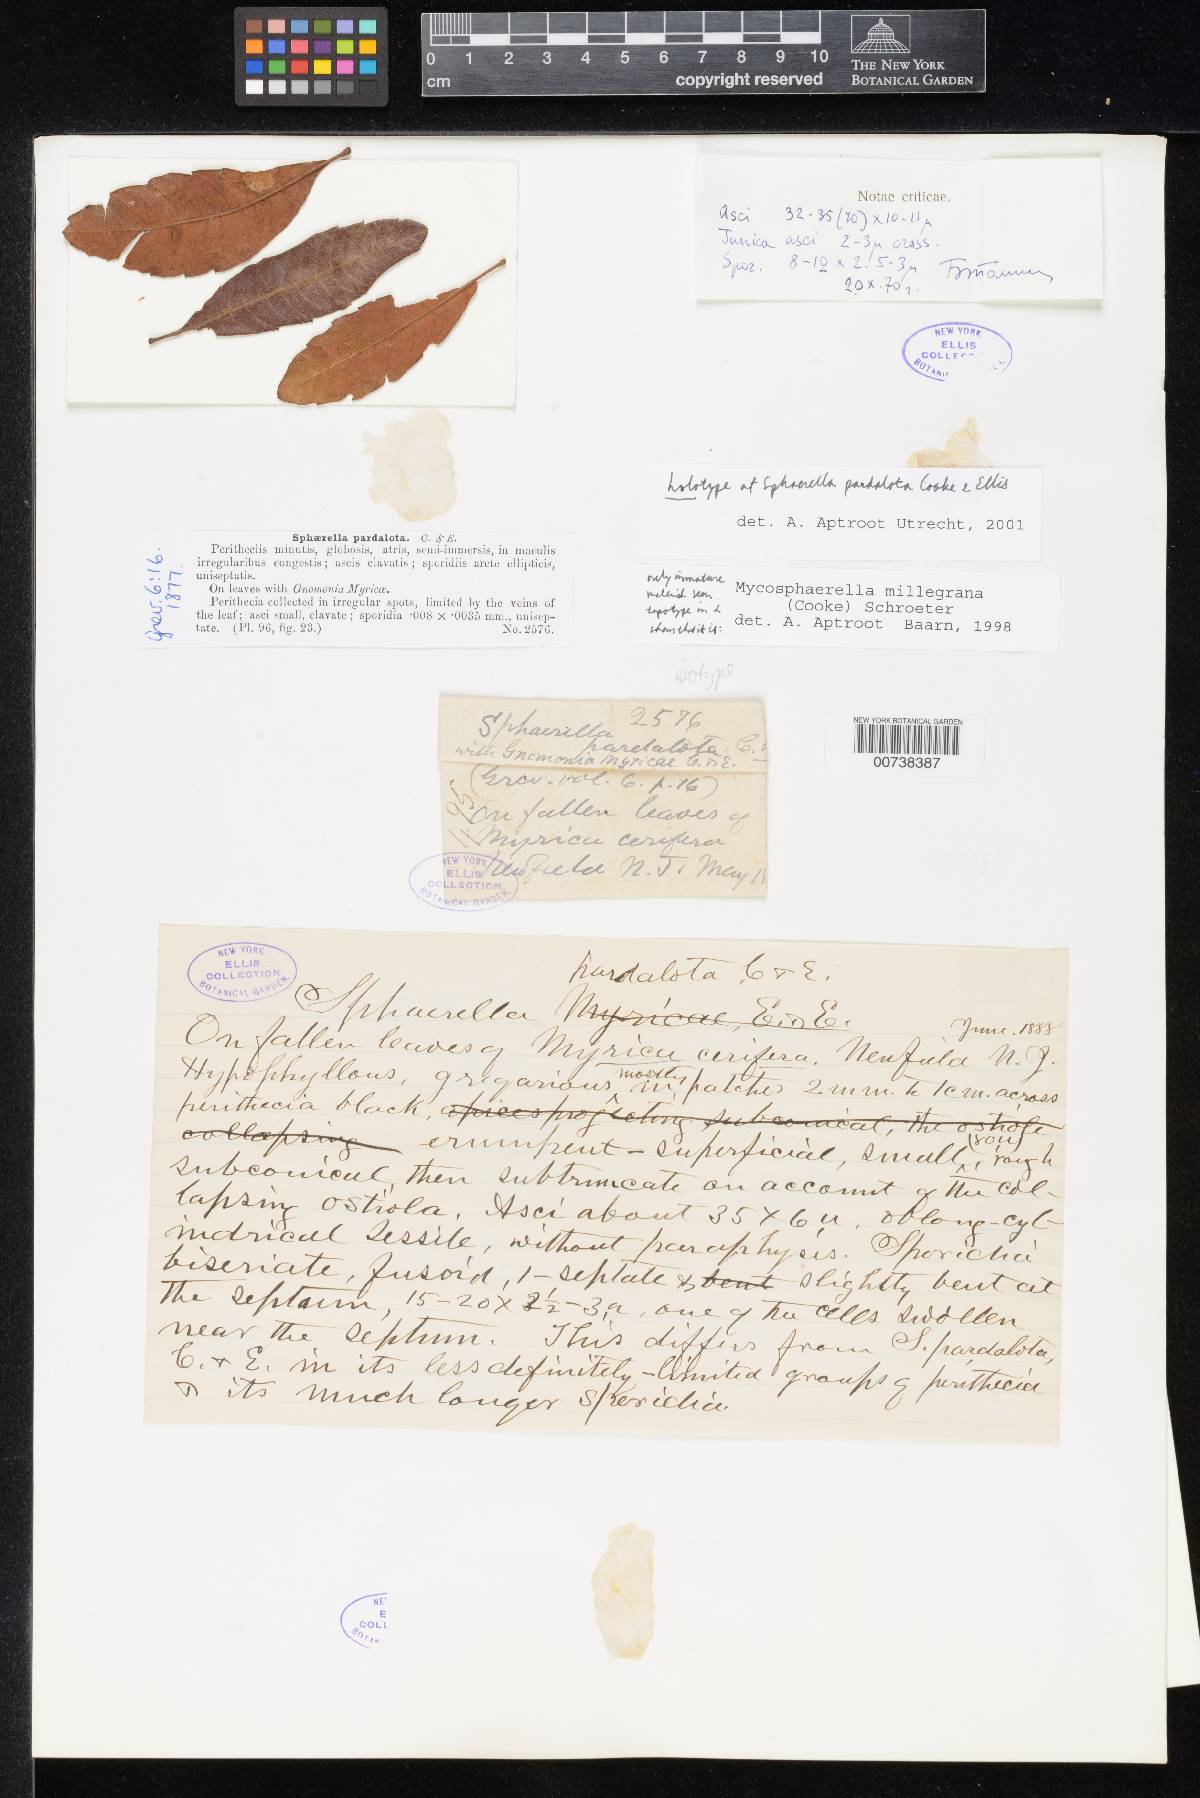 0 1 2 3 4 5 6 7 8 9 10
cm
copyright reserved
THE NEW YORK
BOTANICAL GARDEN
Notae criticae.
Asci 32-35(40) x 10-11 µ
Tunica asci 2-3µ crass.
Spor. 8-10 x 2.5-3µ
20 x 70
NEW YORK
ELLIS
COLLEC
BOTANI
holotype of Sphaerella pardalota Cooke & Ellis
det. A. Aptroot Utrecht, 2001
Sphærella pardalota. C. & E.
Peritheciis minutis, globosis, atris, semi-immersis, in maculis
irregularibus congestis; ascis clavatis; sporidiis arcte ellipticis,
uniseptatis.
On leaves with Gnomonia Myricæ.
Perithecia collected in irregular spots, limited by the veins of
the leaf; asci small, clavate; sporidia ·008 × ·0035 mm., unisep-
tate. (Pl. 96, fig. 23.) No. 2576.
Grev. 6:16.
1877.
only immature
material seen.
topotype in L
shows that it is:
Mycosphaerella millegrana
(Cooke) Schroeter
det. A. Aptroot Baarn, 1998
isotype
NEW YORK BOTANICAL GARDEN
00738387
2576
Sphaerella
pardalota, C.
with Gnomonia Myricae C. & E.
(Grev. vol. 6. p. 16)
On fallen leaves of
Myrica cerifera
Newfield N. J. May
NEW YORK
ELLIS
COLLECTION
BOTANICAL GARDEN.
NEW YORK
ELLIS
COLLECTION
BOTANICAL GARDEN.
pardalota C & E.
Sphaerella Myricae, E. & E.
June. 1888
On fallen leaves of Myrica cerifera. Newfield N. J.
Hypophyllous, gregarious mostly in patches 2 mm. to 1 cm. across
perithecia black, apices projecting subconical, the ostiole
collapsing erumpent-superficial, small (80u), rough
subconical, then subtruncate on account of the col-
lapsing ostiola. Asci about 35 x 6 u, oblong-cyl-
indrical sessile, without paraphysis. Sporidia
biseriate, fusoid, 1-septate & bent slightly bent at
the septum, 15-20 x 2½-3u, one of the cells swollen
near the septum. This differs from S. pardalota,
C. & E. in its less definitely-limited groups of perithecia
& its much longer sporidia.
NE
E
COLL
BOTAN